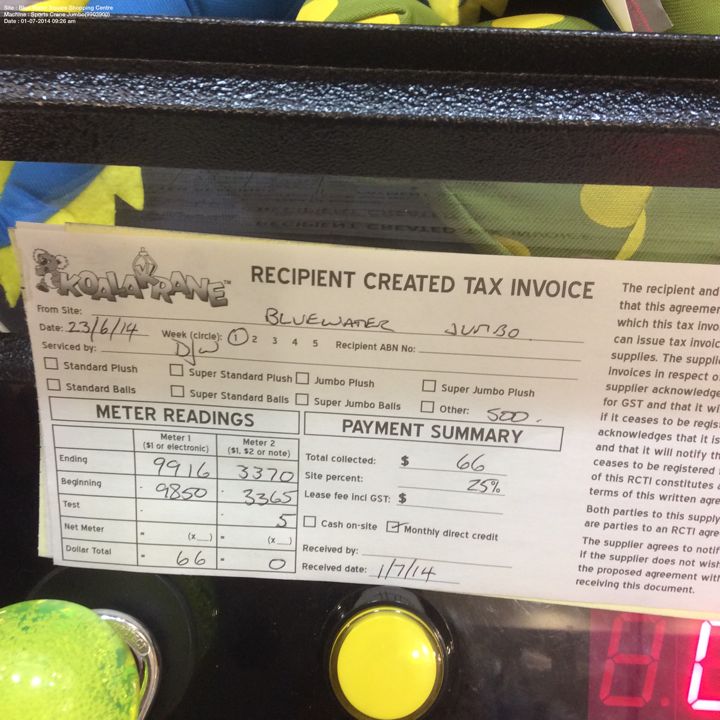 Site : Blue Water Square Shopping Centre
Machine : Sports Crane Jumbo(9902900)
Date : 01-07-2014 09:26 am
KOALA KRANE™
RECIPIENT CREATED TAX INVOICE
From Site: BLUEWATER JUMBO
Date: 23/6/14 Week (circle): 1 2 3 4 5 Recipient ABN No:
Serviced by: D/W
Standard Plush Super Standard Plush Jumbo Plush Super Jumbo Plush
Standard Balls Super Standard Balls Super Jumbo Balls Other: 500.
METER READINGS
Meter 1 ($1 or electronic) Meter 2 ($1, $2 or note)
Ending 9916 3370
Beginning - 9850 - 3365
Test - - 5
Net Meter = (x__) = (x__)
Dollar Total = 66 = 0
PAYMENT SUMMARY
Total collected: $ 66
Site percent: 25%
Lease fee incl GST: $
Cash on-site Monthly direct credit
Received by:
Received date: 1/7/14
The recipient and
that this agreemen
which this tax invo
can issue tax invoic
supplies. The supplie
invoices in respect o
supplier acknowledge
for GST and that it wi
if it ceases to be regis
acknowledges that it is
and that it will notify th
ceases to be registered
of this RCTI constitutes a
terms of this written agre
Both parties to this supply
are parties to an RCTI agre
The supplier agrees to notif
if the supplier does not wish
the proposed agreement with
receiving this document.